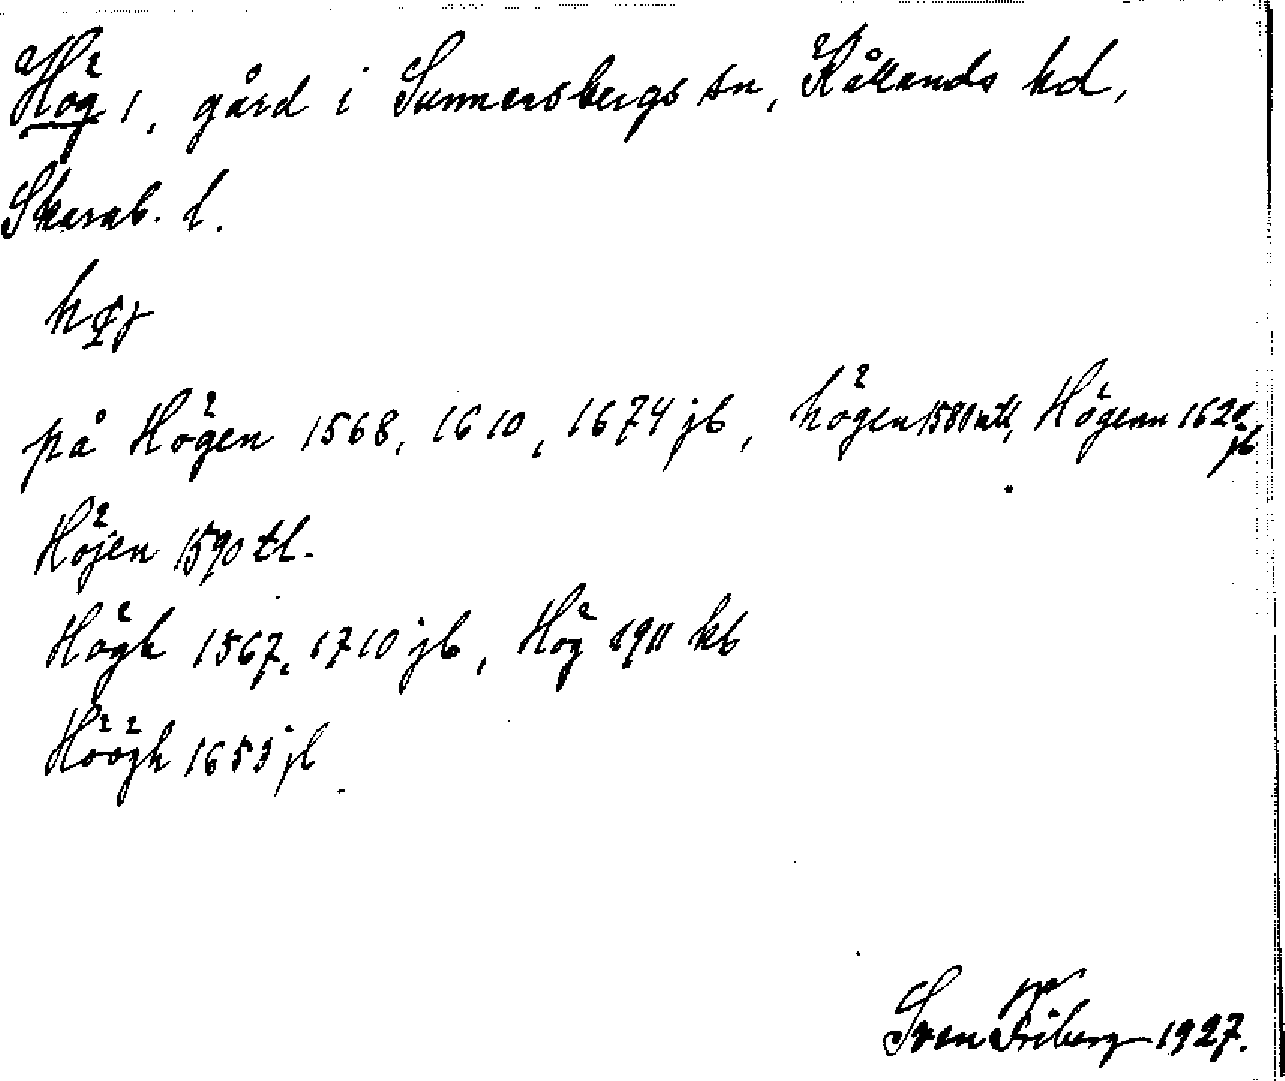 Hög 1, gård i Sunnersbergs sn, Kållands hd,
Skarab. l.
på Högen 1568, 1610, 1674 jb, högen 1580 tll, Högenn 1620 jb
Höjen 1590 tl.
Högh 1567, 1710 jb, Hög 1911 kb
Höögh 1653 jb
Sven Friberg 1927.